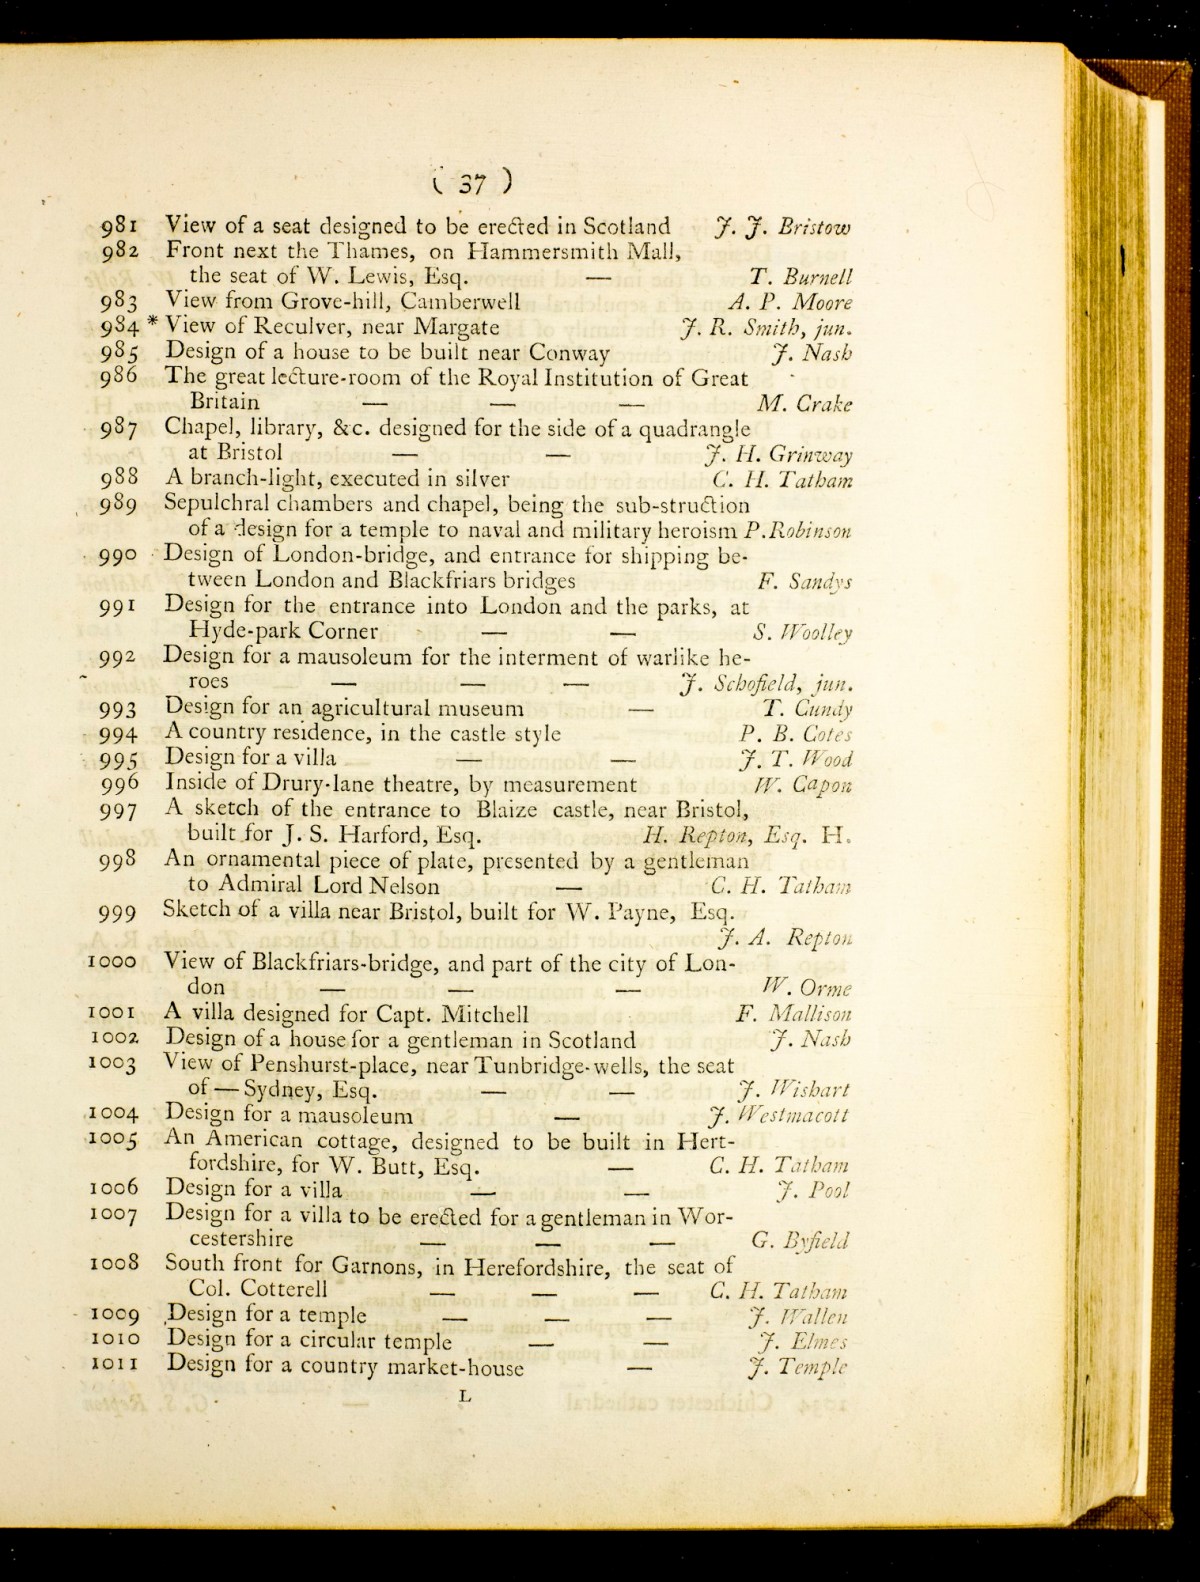 ( 37 )
981 View of a seat designed to be erected in Scotland J. J. Bristow
982 Front next the Thames, on Hammersmith Mall,
the seat of W. Lewis, Esq. — T. Burnell
983 View from Grove-hill, Camberwell A. P. Moore
984 * View of Reculver, near Margate J. R. Smith, jun.
985 Design of a house to be built near Conway J. Nash
986 The great lecture-room of the Royal Institution of Great
Britain — — — M. Crake
987 Chapel, library, &c. designed for the side of a quadrangle
at Bristol — — J. H. Grinway
988 A branch-light, executed in silver C. H. Tatham
989 Sepulchral chambers and chapel, being the sub-struction
of a design for a temple to naval and military heroism P. Robinson
990 Design of London-bridge, and entrance for shipping be-
tween London and Blackfriars bridges F. Sandys
991 Design for the entrance into London and the parks, at
Hyde-park Corner — — S. Woolley
992 Design for a mausoleum for the interment of warlike he-
roes — — — J. Schofield, jun.
993 Design for an agricultural museum — T. Cundy
994 A country residence, in the castle style P. B. Cotes
995 Design for a villa — — J. T. Wood
996 Inside of Drury-lane theatre, by measurement W. Capon
997 A sketch of the entrance to Blaize castle, near Bristol,
built for J. S. Harford, Esq. H. Repton, Esq. H.
998 An ornamental piece of plate, presented by a gentleman
to Admiral Lord Nelson — C. H. Tatham
999 Sketch of a villa near Bristol, built for W. Payne, Esq.
J. A. Repton
1000 View of Blackfriars-bridge, and part of the city of Lon-
don — — — W. Orme
1001 A villa designed for Capt. Mitchell F. Mallison
1002 Design of a house for a gentleman in Scotland J. Nash
1003 View of Penshurst-place, near Tunbridge-wells, the seat
of — Sydney, Esq. — — J. Wishart
1004 Design for a mausoleum — J. Westmacott
1005 An American cottage, designed to be built in Hert-
fordshire, for W. Butt, Esq. — C. H. Tatham
1006 Design for a villa — — J. Pool
1007 Design for a villa to be erected for a gentleman in Wor-
cestershire — — — G. Byfield
1008 South front for Garnons, in Herefordshire, the seat of
Col. Cotterell — — — C. H. Tatham
1009 Design for a temple — — — J. Wallen
1010 Design for a circular temple — — J. Elmes
1011 Design for a country market-house — J. Temple
L